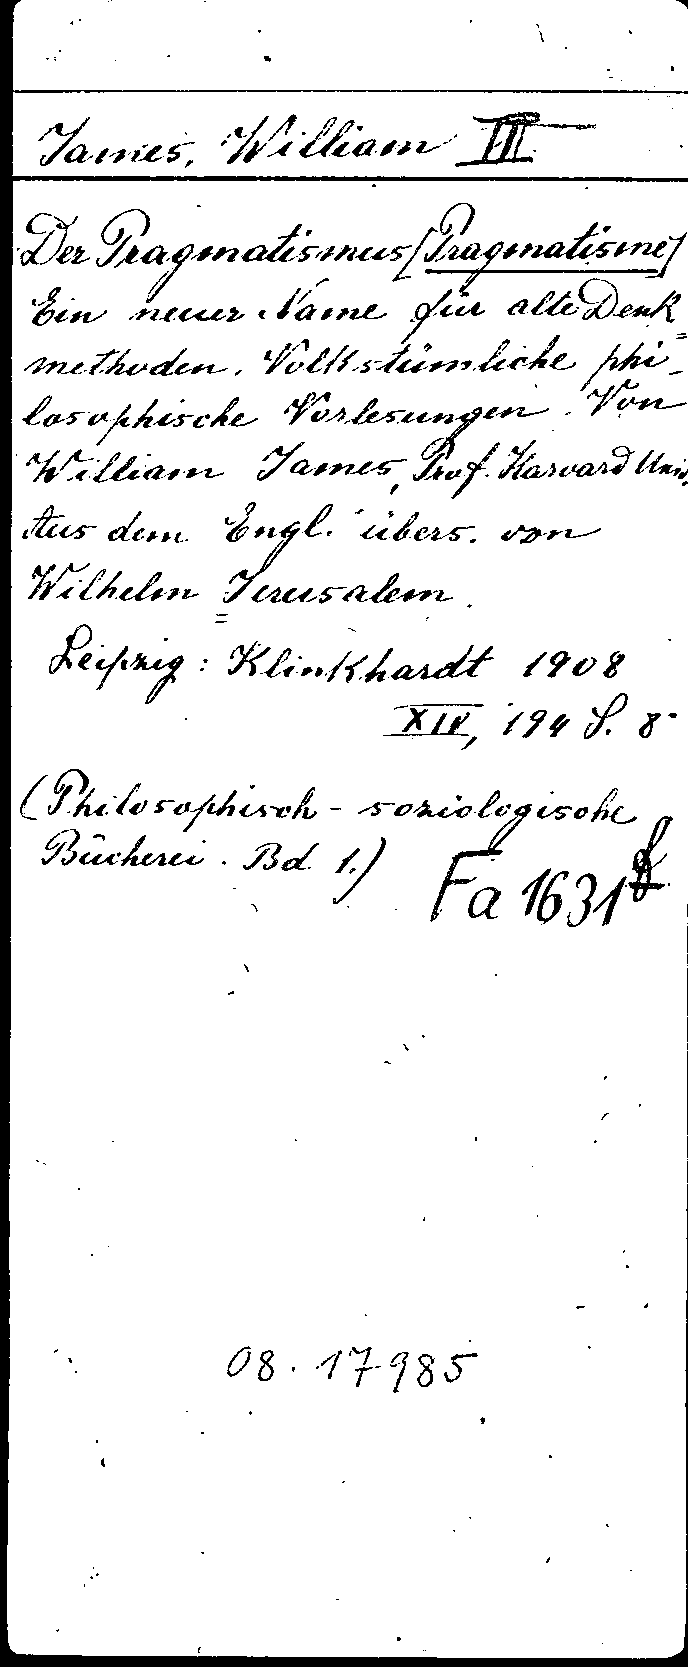 James, William III
Der Pragmatismus [Pragmatisme]
Ein neuer Name für alte Denk=
methoden. Volkstümliche phi-
losophische Vorlesungen. Von
William James, Prof. Harvard Univ.
Aus dem Engl. übers. von
Wilhelm Jerusalem.
Leipzig: Klinkhardt 1908
XIV, 194 S. 8°
(Philosophisch-soziologische
Bücherei. Bd 1.)
Fa 1631
08. 17985